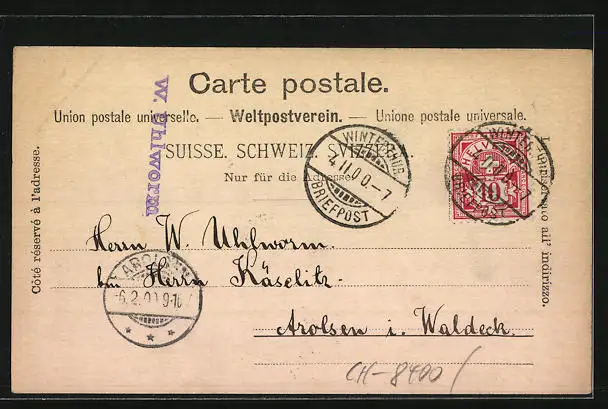 Carte postale.
Union postale universelle. — Weltpostverein. — Unione postale universale.
SUISSE. SCHWEIZ. SVIZZERA.
Nur für die Adresse
Côté réservé à l'adresse.
W. Uhlworm
WINTERTHUR
BRIEFPOST
HELVETIA
10
Herrn W. Uhlworm.
bei Herrn Käselitz.
Arolsen i. Waldeck.
AROLSEN
6.2.00 9-10
CH-8400